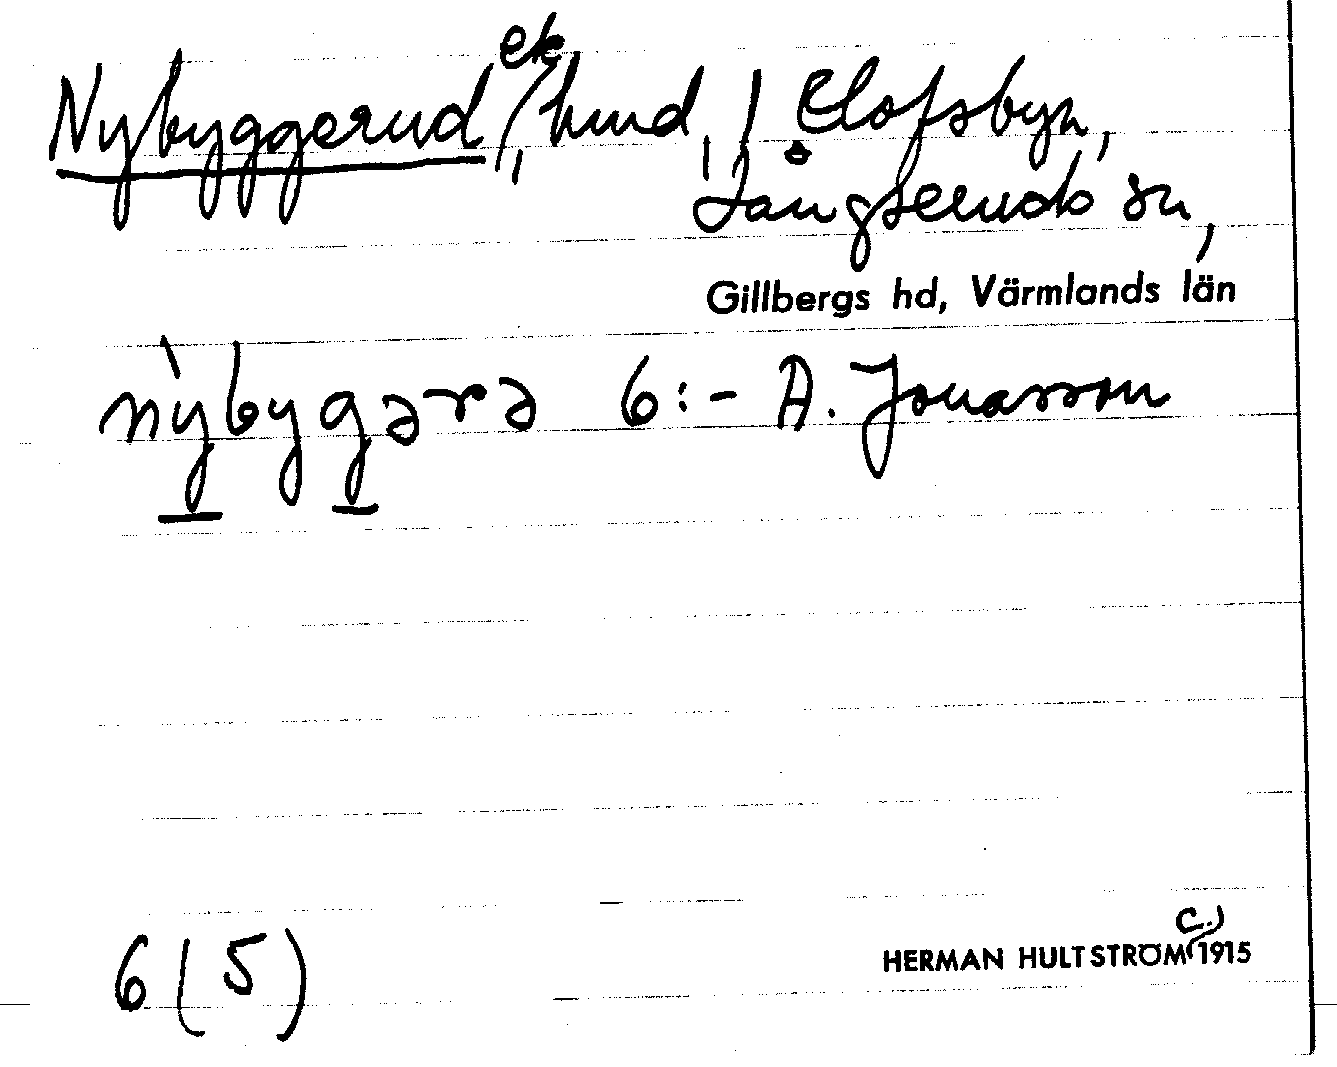 ek
Nybyggerud, hmd, / Elofsbyn,
Långseruds sn,
Gillbergs hd, Värmlands län
nỳbygərə 6:- A. Jonasson
c.)
HERMAN HULTSTRÖM 1915
6 (5)